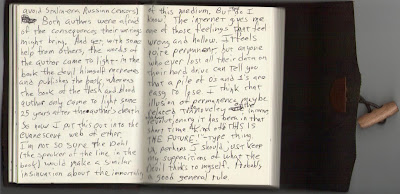 avoid Stalin-era Russian censors)
Both authors were afraid
of the consequences their writings
might bring. And yet, with some
help from others, the words of
the author came to light - in the
book the devil himself recreates
and publishes the book, whereas
the book of the flesh and blood
author only came to light some
25 years after the author's death.
So now I put this out into the
evanescence web of ether.
I'm not so sure the Devil
(the speaker of the line in the
book) would make a similar
insinuation about the immortality
of this medium. But do I
know? The internet gives me
one of those feelings that feel
wrong and hollow. It feels
more permanent, but anyone
who ever lost all their data on
their hard drive can tell you
that a pile of 0s and 1s are
easy to lose. I think that
illusion of permanence maybe
related
enjoy it has been in that
short time kind of a THIS IS
THE FUTURE!- type thing.
Or perhaps I should just keep
my suppositions of what the
Devil thinks to myself. Probably
a good general rule.